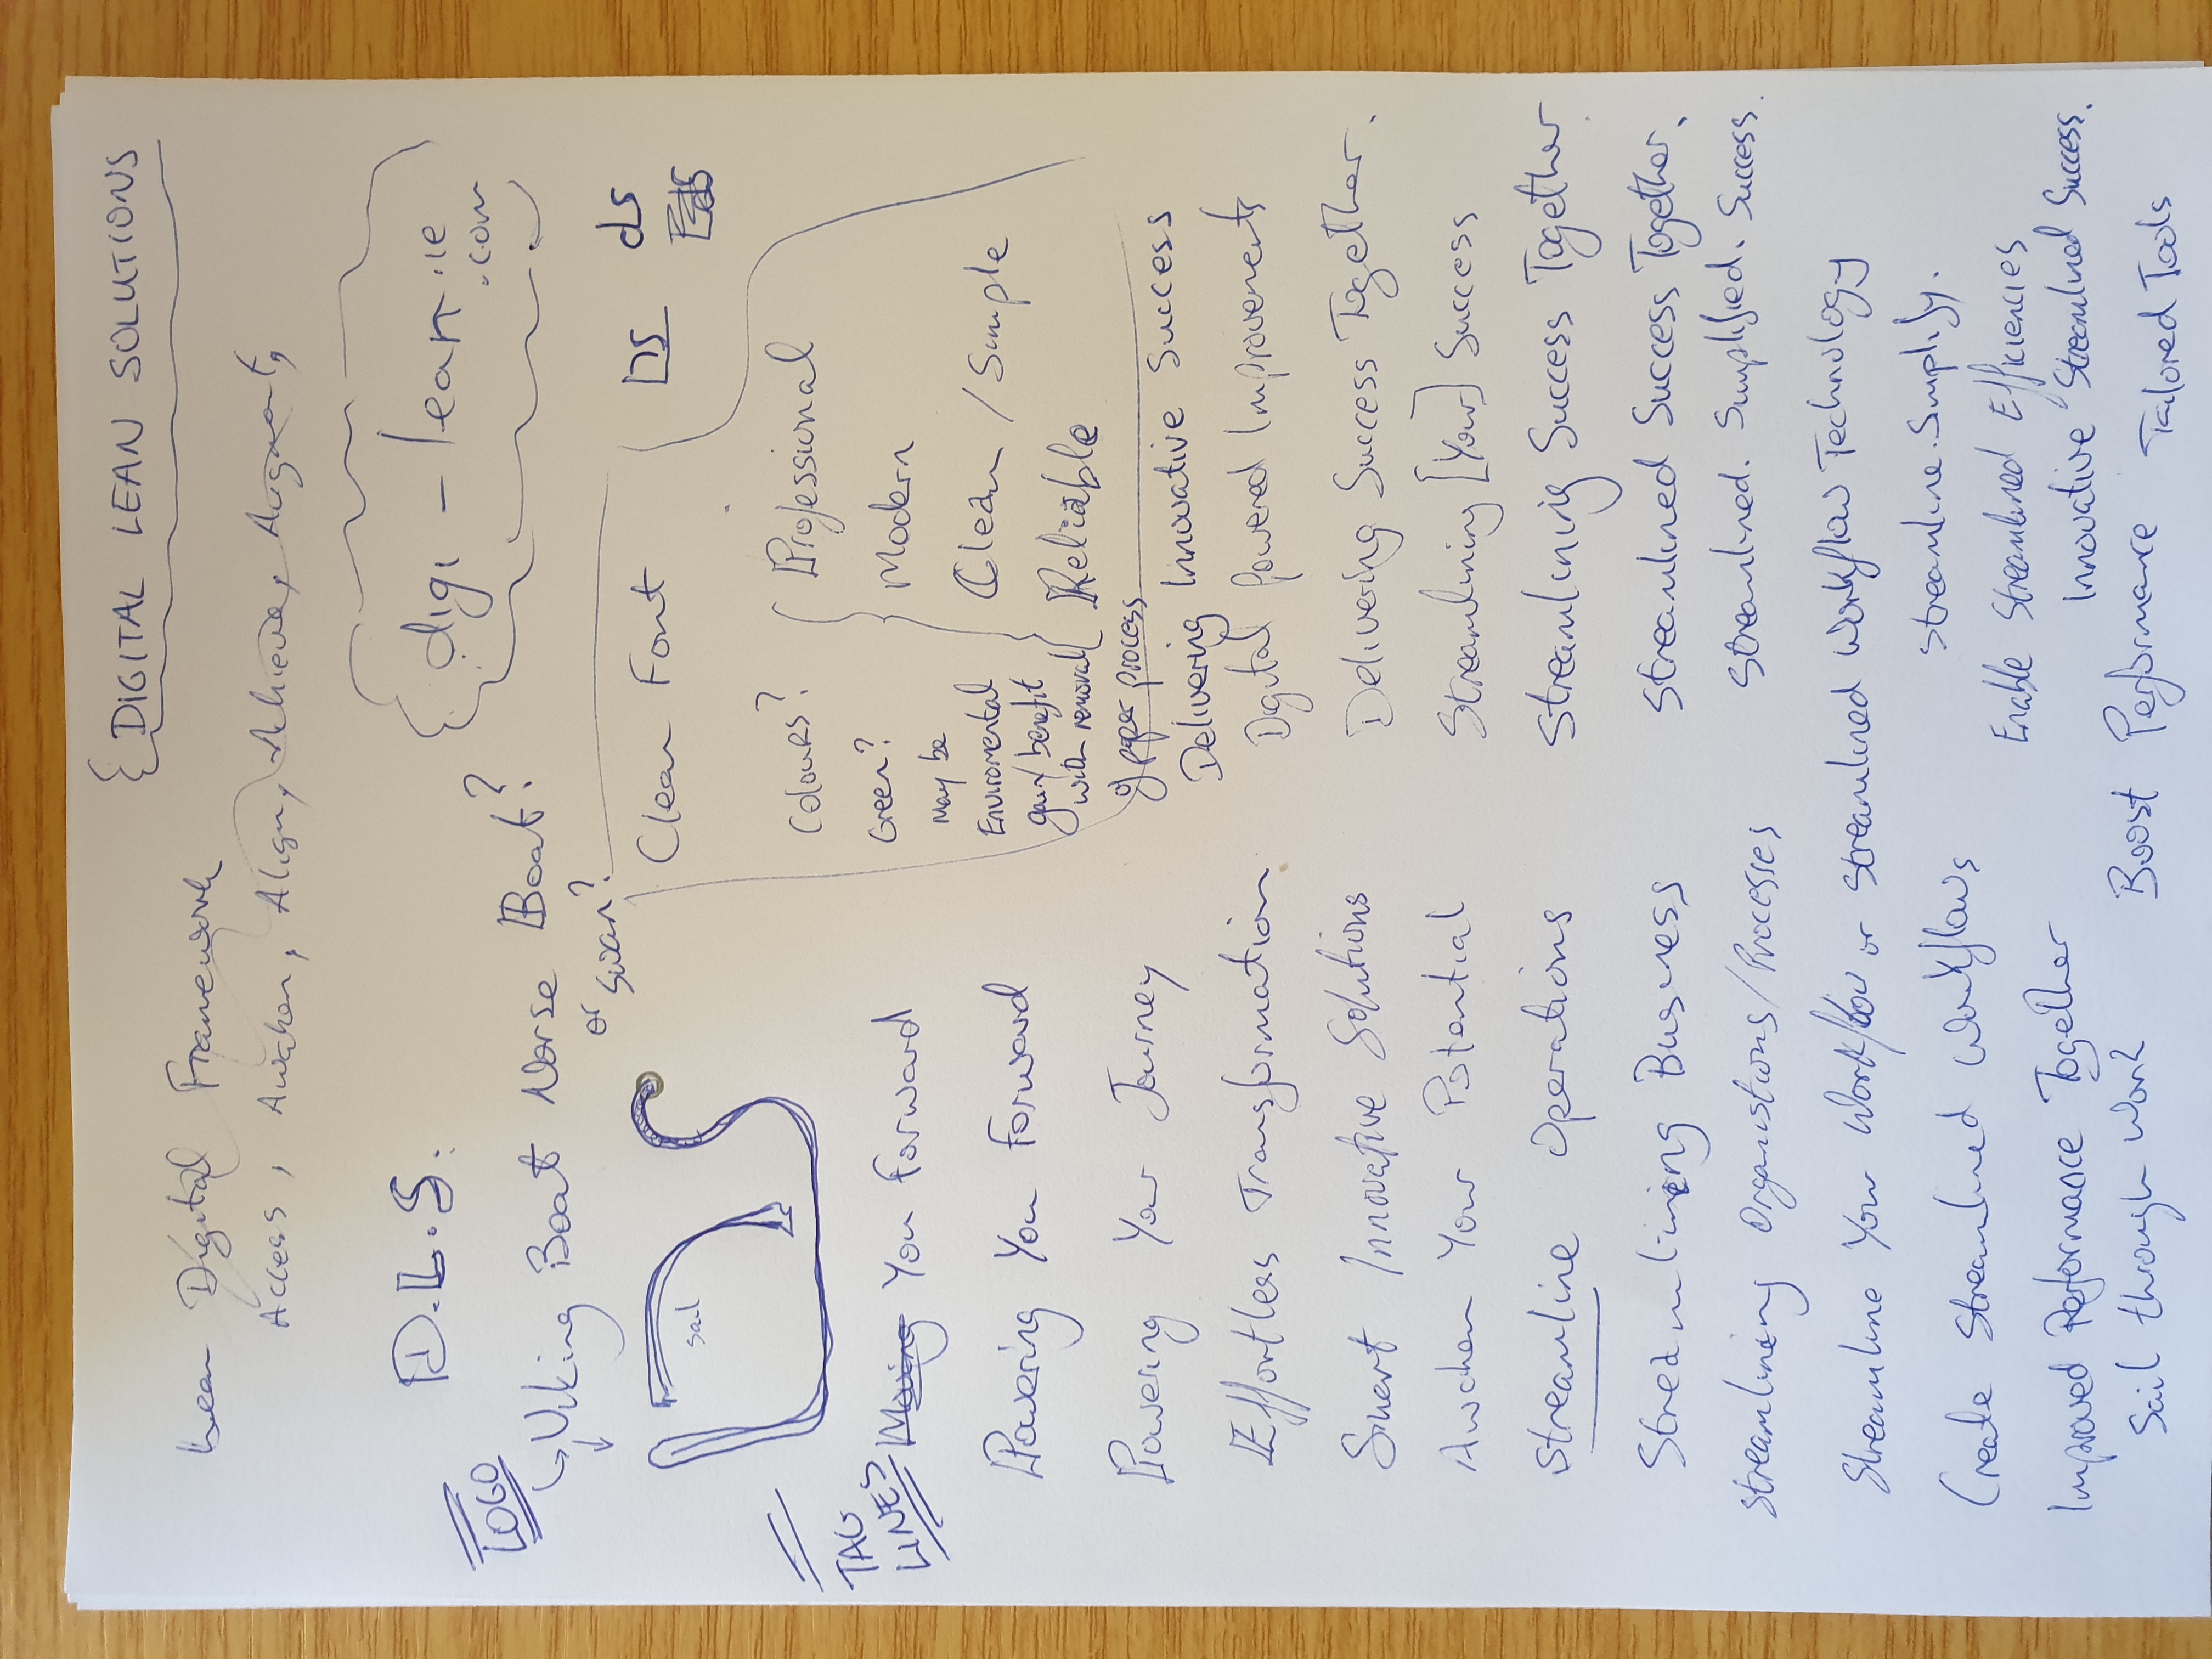 {DIGITAL LEAN SOLUTIONS
Lean Digital Framework
Access, Awaken, Align, Achieve, Augment,
D.L.S.
{digi - lean .ie
.com
LOGO
Viking Boat Norse Boat?
or Swan?
sail
Clean Font
DS dS
Colours?
Green?
May be
Enviromental
gain/benefit
with removal
of paper process
Professional
Modern
Clean / Simple
Reliable
TAG
LINES
Moving You Forward
Powering You Forward
Powering Your Journey
Effortless Transformation
Smart Innovative Solutions
Awaken Your Potential
Streamline Operations
Streamlining Business
Streamlining Organistions/Processes
Streamline Your Workflow or Streamlined Workflow Technology
Create Streamlined Workflows
Improved Performance Together
Sail through work
Delivering Innovative Success
Digital Powered Improvements
Delivering Success Together.
Streamlining [Your] Success
Streamlining Success Together
Streamlined Success Together.
Streamlined. Simplified. Success.
Streamline.Simplify.
Enable Streamlined Efficiencies
Innovative Streamlined Success.
Boost Performance Tailored Tools